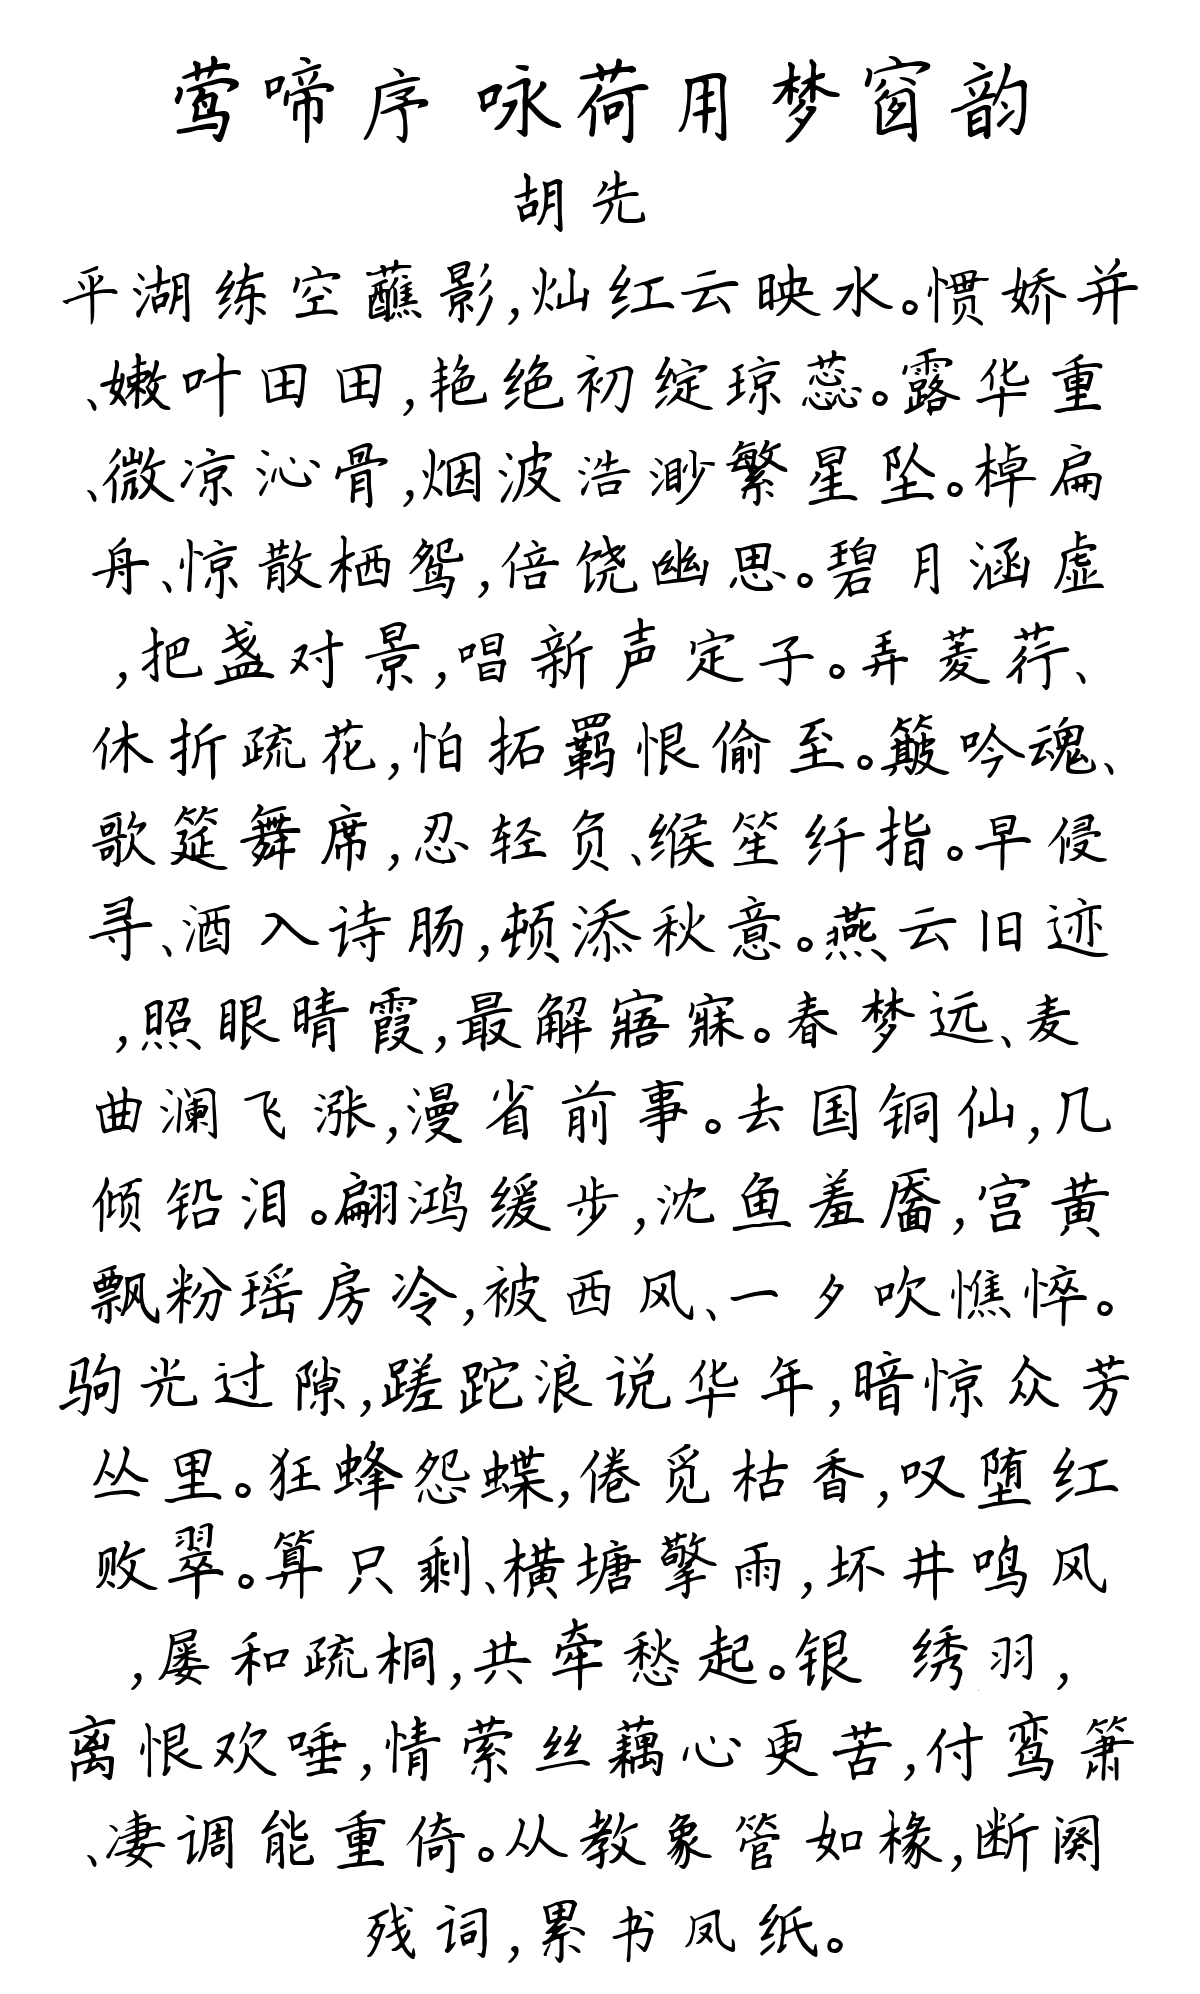 莺啼序 咏荷用梦窗韵
胡先
平湖练空蘸影,灿红云映水。惯娇并
、嫩叶田田,艳绝初绽琼蕊。露华重
、微凉沁骨,烟波浩渺繁星坠。棹扁
舟、惊散栖鸳,倍饶幽思。碧月涵虚
,把盏对景,唱新声定子。弄菱荇、
休折疏花,怕拓羁恨偷至。簸吟魂、
歌筵舞席,忍轻负、缑笙纤指。早侵
寻、酒入诗肠,顿添秋意。燕云旧迹
,照眼晴霞,最解寤寐。春梦远、麦
曲澜飞涨,漫省前事。去国铜仙,几
倾铅泪。翩鸿缓步,沈鱼羞靥,宫黄
飘粉瑶房冷,被西风、一夕吹憔悴。
驹光过隙,蹉跎浪说华年,暗惊众芳
丛里。狂蜂怨蝶,倦觅枯香,叹堕红
败翠。算只剩、横塘擎雨,坏井鸣风
,屡和疏桐,共牵愁起。银 绣羽,
离恨欢唾,情萦丝藕心更苦,付鸾箫
、凄调能重倚。从教象管如椽,断阕
残词,累书凤纸。